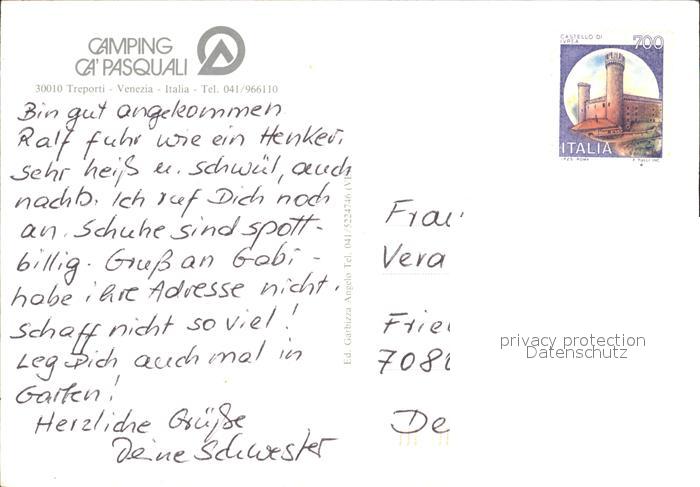 CAMPING
CA' PASQUALI
30010 Treporti - Venezia - Italia - Tel. 041/966110
Bin gut angekommen
Ralf fuhr wie ein Henker.
Sehr heiß u. schwül, auch
nachts. Ich ruf Dich noch
an. Schuhe sind spott-
billig. Gruß an Gabi -
habe ihre Adresse nicht.
Schaff nicht so viel!
Leg Dich auch mal in
Garten!
Herzliche Grüße
Deine Schwester
Ed. Garbizza Angelo Tel. 041/5224746 (VE)
CASTELLO DI
IVREA
700
ITALIA
I.P.Z.S. ROMA
E. TULLI INC.
Frau
Vera
Frie
7080
De
privacy protection
Datenschutz